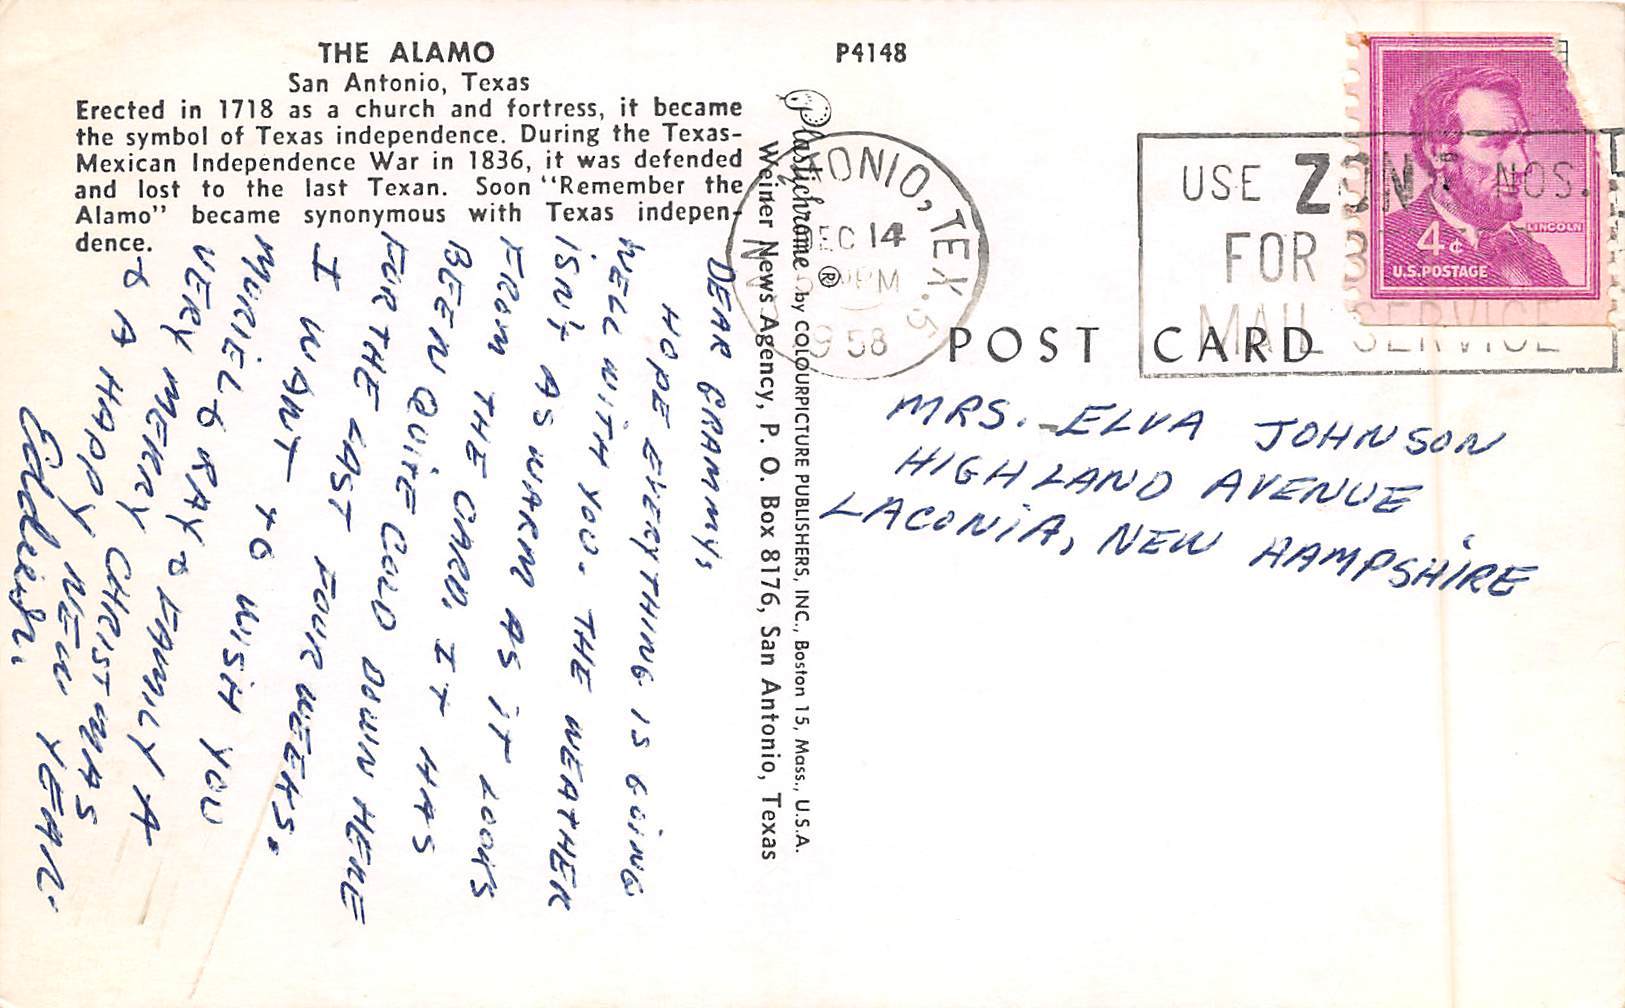 THE ALAMO
San Antonio, Texas
Erected in 1718 as a church and fortress, it became
the symbol of Texas independence. During the Texas-
Mexican Independence War in 1836, it was defended
and lost to the last Texan. Soon "Remember the
Alamo" became synonymous with Texas indepen-
dence.
P4148
DEAR GRAMMY,
HOPE EVERYTHING IS GOING
WELL WITH YOU. THE WEATHER
ISN'T AS WARM AS IT LOOKS
FROM THE CARD, IT HAS
BEEN QUITE COLD DOWN HERE
FOR THE LAST FOUR WEEKS.
I WANT TO WISH YOU
MURIEL & RAY & FAMILY A
VERY MERRY CHRISTMAS
& A HAPPY NEW YEAR.
Plastichrome ® by COLOURPICTURE PUBLISHERS, INC., Boston 15, Mass., U.S.A.
Weiner News Agency, P. O. Box 8176, San Antonio, Texas
ONIO, TEX.
DEC 14
PM
1958
USE ZONE NOS.
FOR
MAIL SERVICE
LINCOLN
4¢
U.S. POSTAGE
POST CARD
MRS. ELVA JOHNSON
HIGHLAND AVENUE
LACONIA, NEW HAMPSHIRE